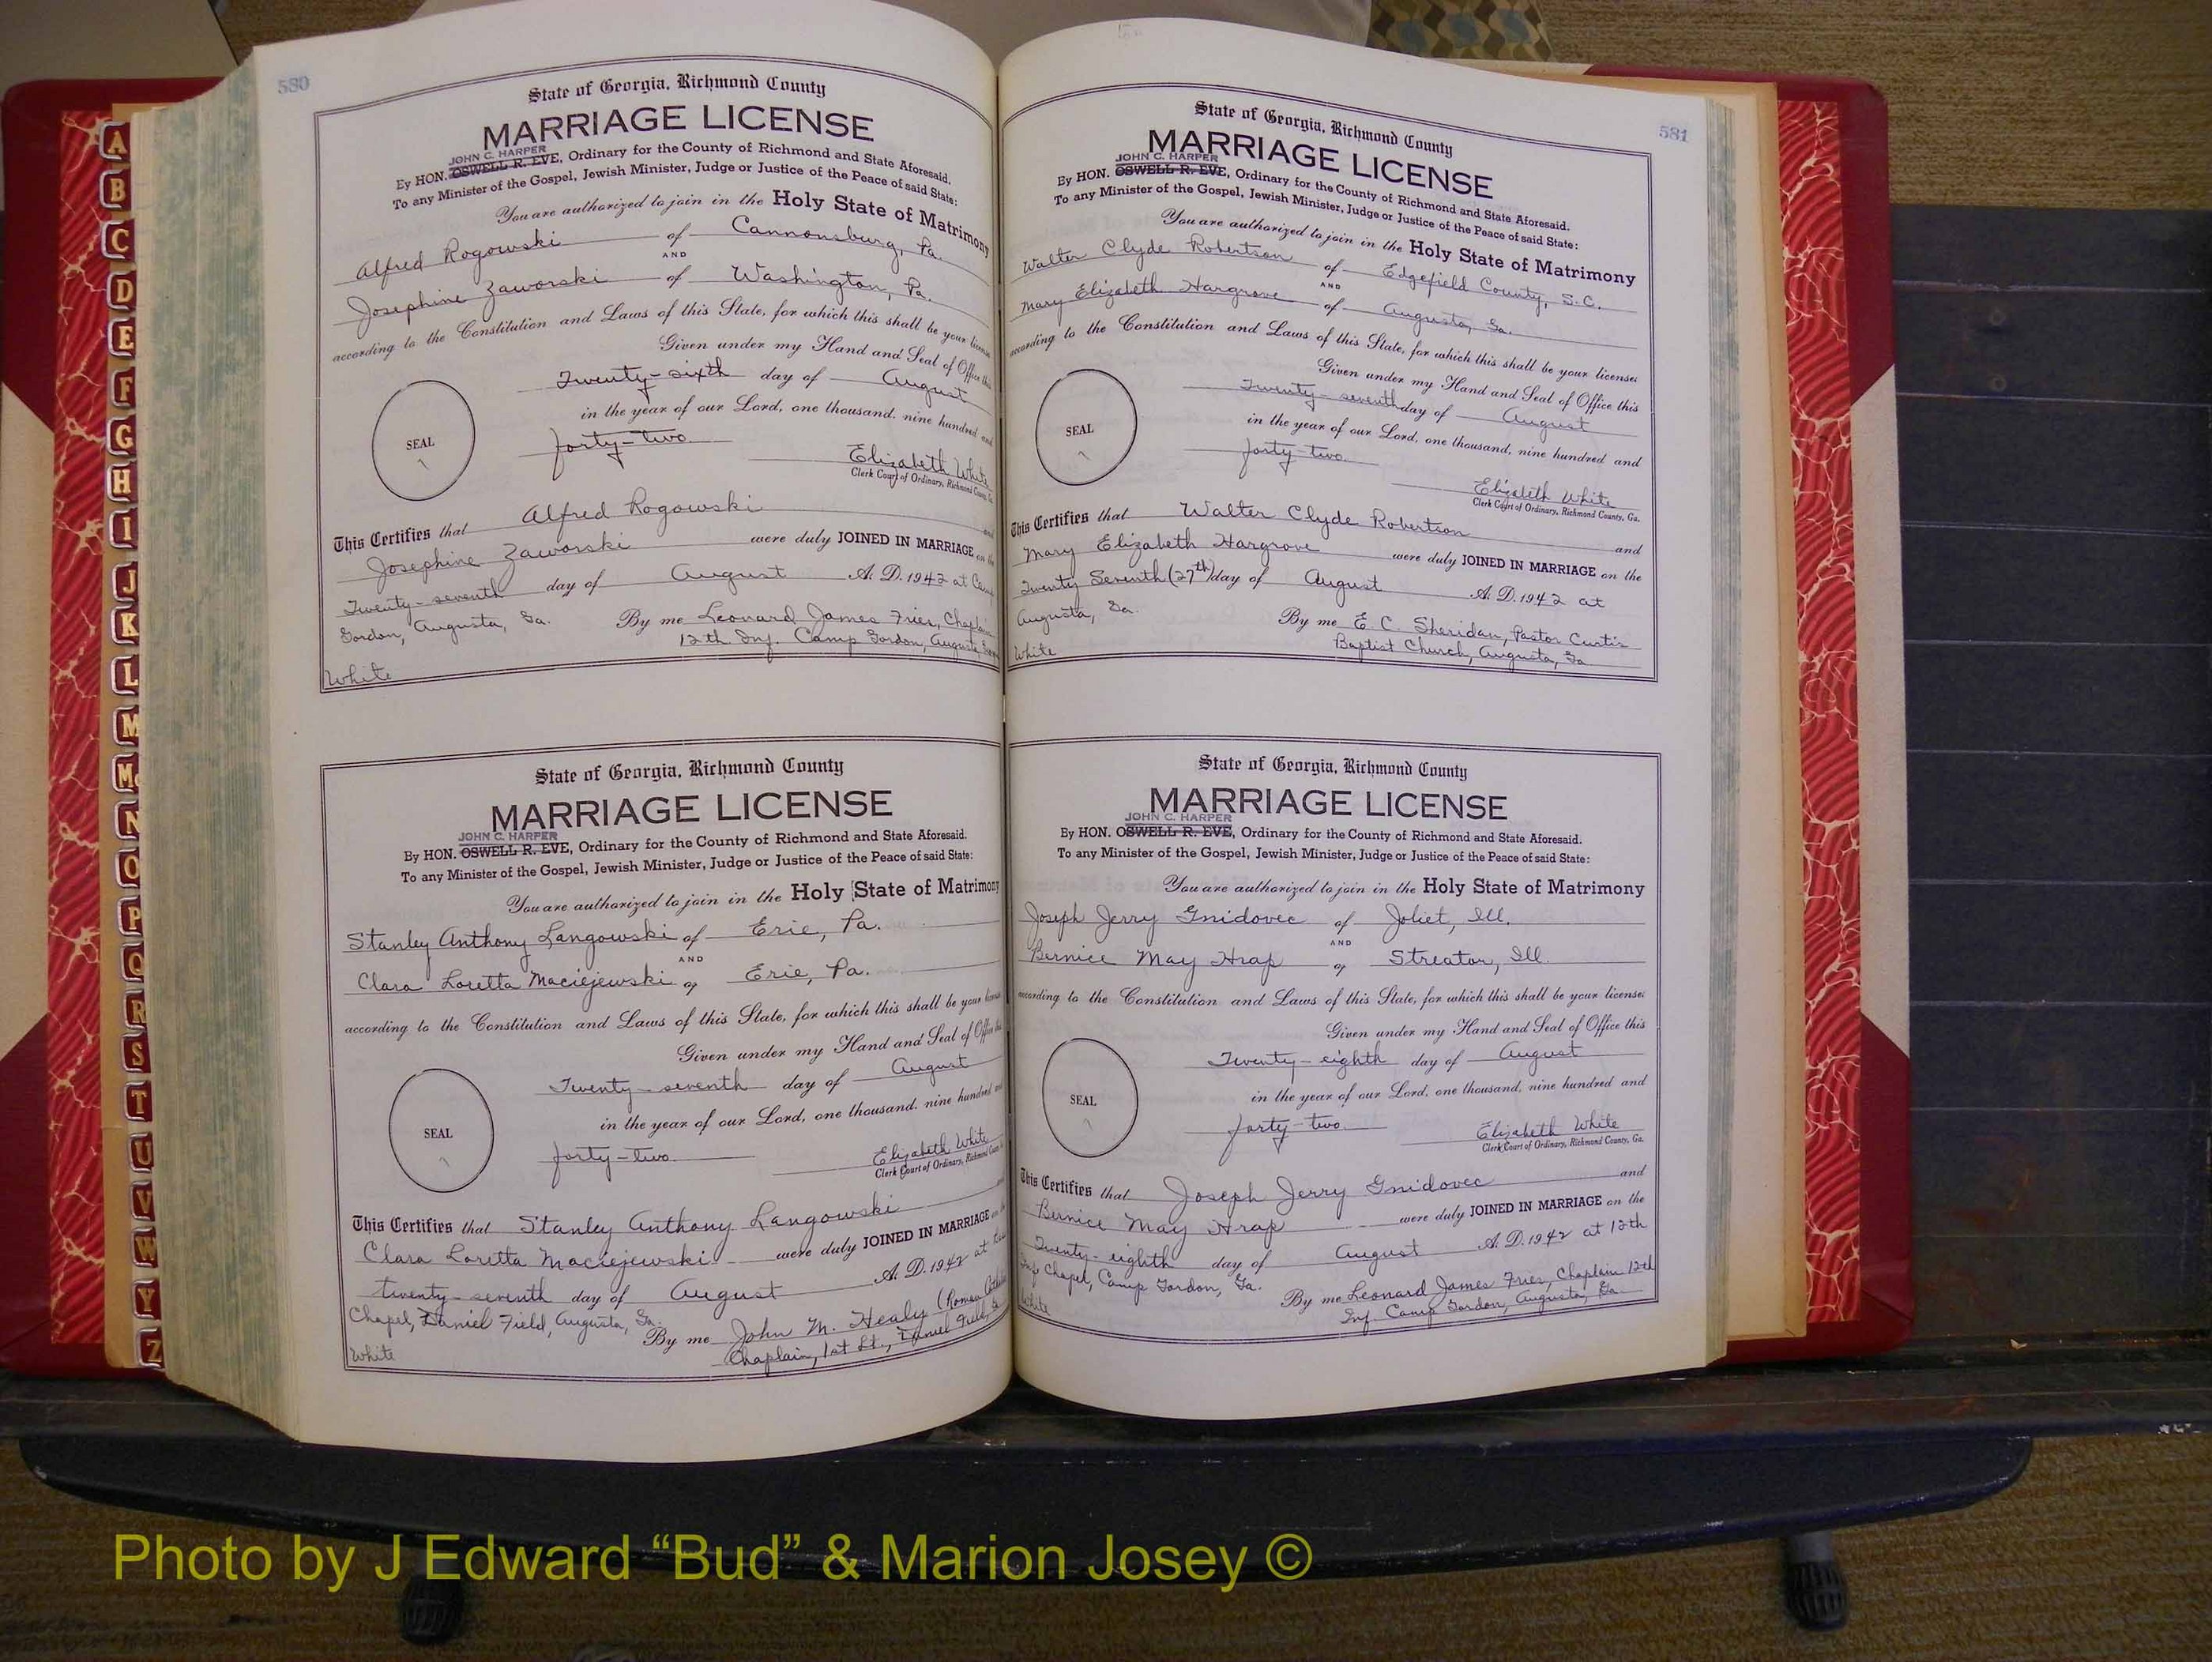 580
State of Georgia, Richmond County
MARRIAGE LICENSE
JOHN C. HARPER
By HON. OSWELL R. EVE, Ordinary for the County of Richmond and State Aforesaid.
To any Minister of the Gospel, Jewish Minister, Judge or Justice of the Peace of said State:
You are authorized to join in the Holy State of Matrimony
Alfred Rogowski of Cannonsburg, Pa.
AND
Josephine Zaworski of Washington, Pa.
according to the Constitution and Laws of this State, for which this shall be your license
Given under my Hand and Seal of Office this
Twenty-sixth day of August
in the year of our Lord, one thousand, nine hundred and
SEAL
forty-two
Elizabeth White
Clerk Court of Ordinary, Richmond County, Ga.
This Certifies that Alfred Rogowski and
Josephine Zaworski were duly JOINED IN MARRIAGE on the
Twenty-seventh day of August A. D. 1942 at Camp
Gordon, Augusta, Ga. By me Leonard James Fries, Chaplain
12th Inf. Camp Gordon, Augusta,
White
State of Georgia, Richmond County
MARRIAGE LICENSE
JOHN C. HARPER
By HON. OSWELL R. EVE, Ordinary for the County of Richmond and State Aforesaid.
To any Minister of the Gospel, Jewish Minister, Judge or Justice of the Peace of said State:
You are authorized to join in the Holy State of Matrimony
Stanley Anthony Langowski of Erie, Pa.
AND
Clara Loretta Maciejewski of Erie, Pa.
according to the Constitution and Laws of this State, for which this shall be your license
Given under my Hand and Seal of Office this
Twenty-seventh day of August
in the year of our Lord, one thousand, nine hundred and
SEAL
forty-two
Elizabeth White
Clerk Court of Ordinary, Richmond County
This Certifies that Stanley Anthony Langowski and
Clara Loretta Maciejewski were duly JOINED IN MARRIAGE on the
twenty-seventh day of August A. D. 1942 at the
Chapel, Daniel Field, Augusta, Ga. By me John M. Healy (Roman Catholic
Chaplain, 1st Lt., Daniel Field,
White
581
State of Georgia, Richmond County
MARRIAGE LICENSE
JOHN C. HARPER
By HON. OSWELL R. EVE, Ordinary for the County of Richmond and State Aforesaid.
To any Minister of the Gospel, Jewish Minister, Judge or Justice of the Peace of said State:
You are authorized to join in the Holy State of Matrimony
Walter Clyde Robertson of Edgefield County, S.C.
AND
Mary Elizabeth Hargrove of Augusta, Ga.
according to the Constitution and Laws of this State, for which this shall be your license:
Given under my Hand and Seal of Office this
Twenty-seventh day of August
in the year of our Lord, one thousand, nine hundred and
SEAL
forty-two
Elizabeth White
Clerk Court of Ordinary, Richmond County, Ga.
This Certifies that Walter Clyde Robertson and
Mary Elizabeth Hargrove were duly JOINED IN MARRIAGE on the
Twenty Seventh (27th) day of August A. D. 1942 at
Augusta, Ga. By me E. C. Sheridan, Pastor Curtis
Baptist Church, Augusta, Ga
White
State of Georgia, Richmond County
MARRIAGE LICENSE
JOHN C. HARPER
By HON. OSWELL R. EVE, Ordinary for the County of Richmond and State Aforesaid.
To any Minister of the Gospel, Jewish Minister, Judge or Justice of the Peace of said State:
You are authorized to join in the Holy State of Matrimony
Joseph Jerry Gnidovec of Joliet, Ill.
AND
Bernice May Hrap of Streator, Ill.
according to the Constitution and Laws of this State, for which this shall be your license:
Given under my Hand and Seal of Office this
Twenty-eighth day of August
in the year of our Lord, one thousand, nine hundred and
SEAL
forty-two
Elizabeth White
Clerk Court of Ordinary, Richmond County, Ga.
This Certifies that Joseph Jerry Gnidovec and
Bernice May Hrap were duly JOINED IN MARRIAGE on the
Twenty-eighth day of August A. D. 1942 at 12th
Inf Chapel, Camp Gordon, Ga. By me Leonard James Fries, Chaplain 12th
Inf. Camp Gordon, Augusta, Ga.
White
A
B
C
D
E
F
G
H
I
J
K
L
M
Mc
N
O
P
Q
R
S
T
U
V
W
Y
Z
Photo by J Edward “Bud” & Marion Josey ©